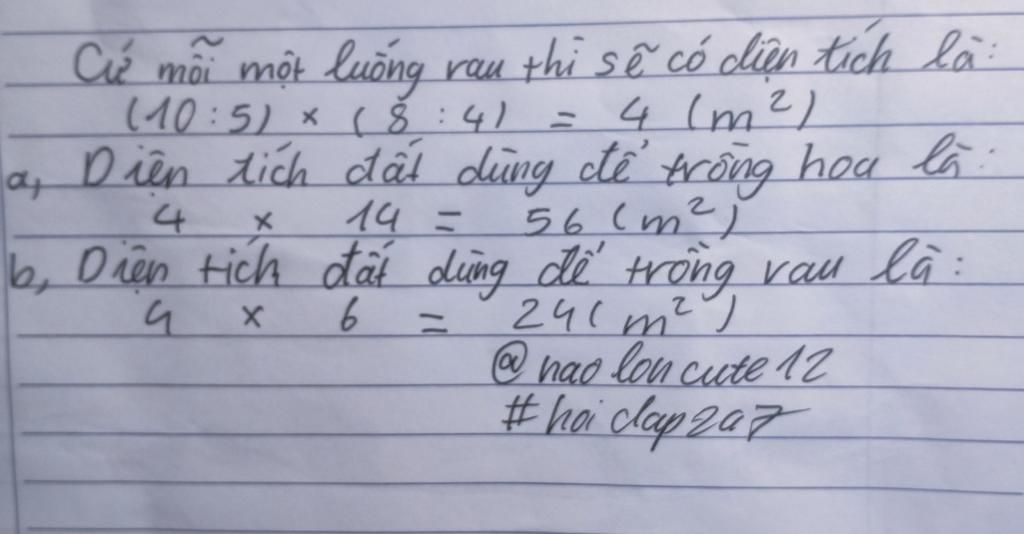 Cứ mỗi một luống rau thì sẽ có diện tích là:
(10 : 5) × (8 : 4) = 4 (m²)
a, Diện tích đất dùng để trồng hoa là:
4 × 14 = 56 (m²)
b, Diện tích đất dùng để trồng rau là:
4 × 6 = 24 (m²)
@naoloncute12
#hoidap2a7